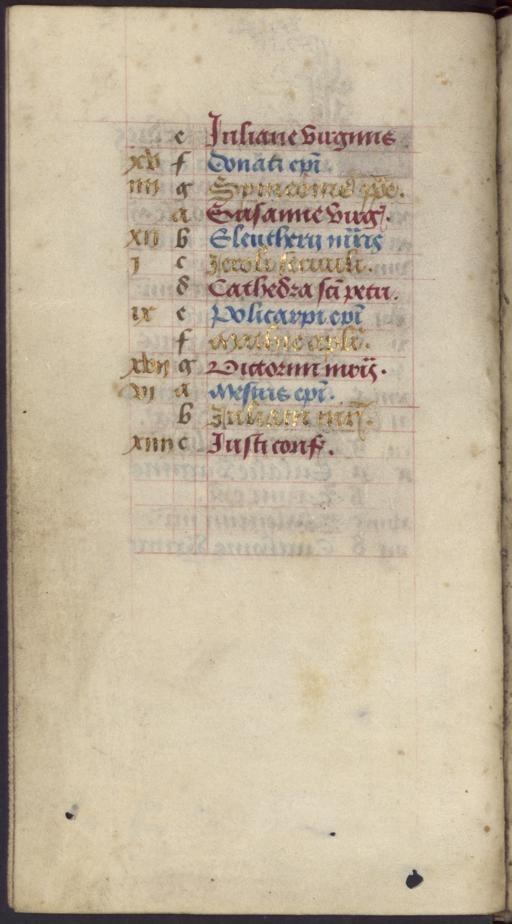 e Juliane virginis.
xv f Donati epi
iiii g Symeonis epi.
a Susanne virg.
xii b Eleutherii mris
j c
d Cathedra sci petri.
ix e Policarpi epi
f Mathie apli.
xvii g Victorini mris.
vi a Nestris epi.
b Juliani mr.
xiiii c Justi conf.